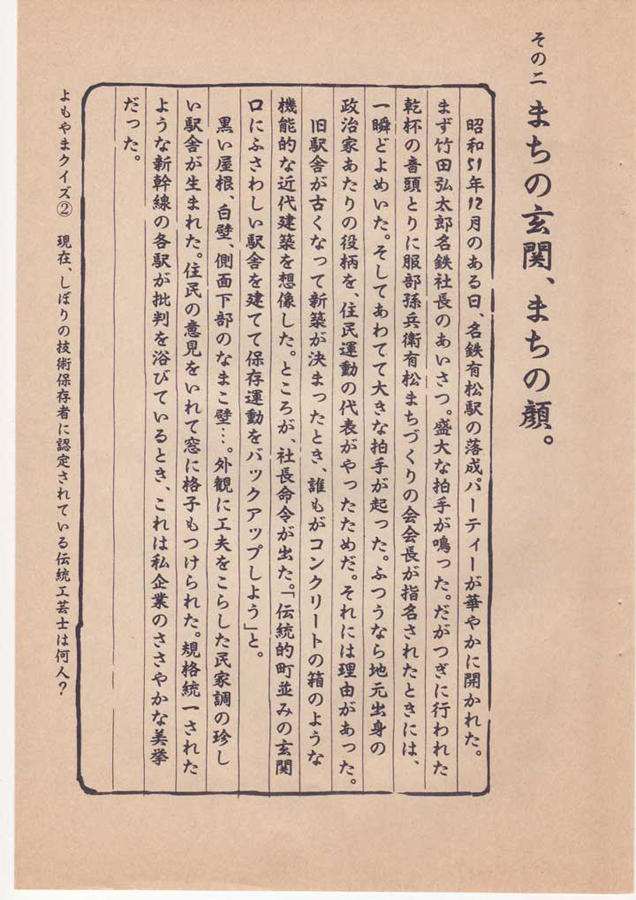 その二 まちの玄関、まちの顔。
昭和51年12月のある日、名鉄有松駅の落成パーティーが華やかに開かれた。
まず竹田弘太郎名鉄社長のあいさつ。盛大な拍手が鳴った。だがつぎに行われた
乾杯の音頭とりに服部孫兵衛有松まちづくりの会会長が指名されたときには、
一瞬どよめいた。そしてあわてて大きな拍手が起った。ふつうなら地元出身の
政治家あたりの役柄を、住民運動の代表がやったためだ。それには理由があった。
旧駅舎が古くなって新築が決まったとき、誰もがコンクリートの箱のような
機能的な近代建築を想像した。ところが、社長命令が出た。「伝統的町並みの玄関
口にふさわしい駅舎を建てて保存運動をバックアップしよう」と。
黒い屋根、白壁、側面下部のなまこ壁…。外観に工夫をこらした民家調の珍し
い駅舎が生まれた。住民の意見をいれて窓に格子もつけられた。規格統一された
ような新幹線の各駅が批判を浴びているとき、これは私企業のささやかな美挙
だった。
よもやまクイズ② 現在、しぼりの技術保存者に認定されている伝統工芸士は何人？